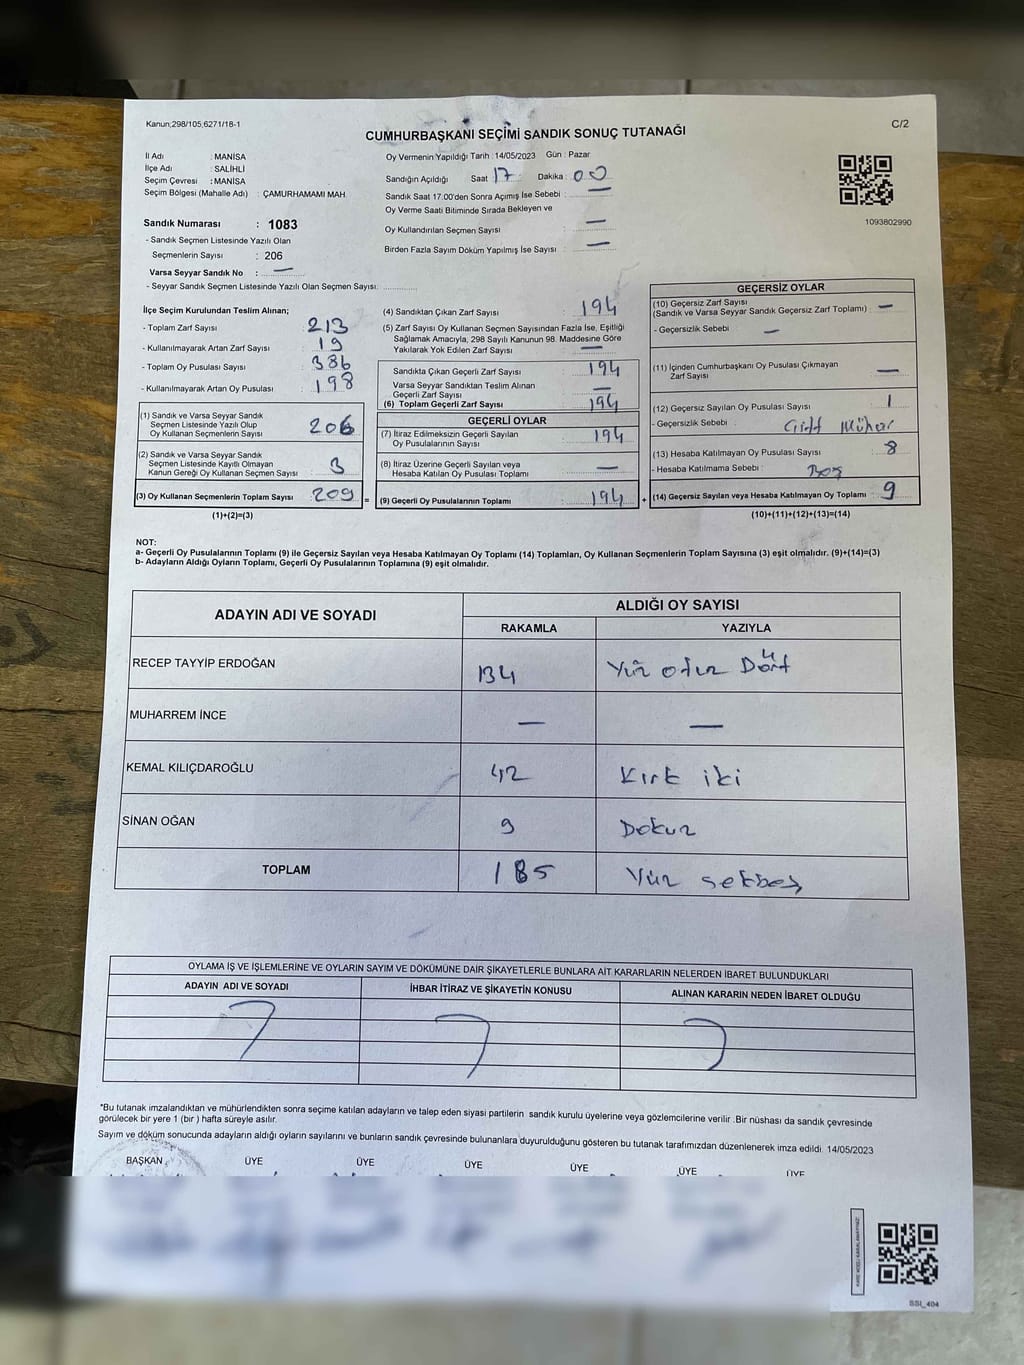 Kanun;298/105,6271/18-1
CUMHURBAŞKANI SEÇİMİ SANDIK SONUÇ TUTANAĞI
C/2
İl Adı : MANİSA
İlçe Adı : SALİHLİ
Seçim Çevresi : MANİSA
Seçim Bölgesi (Mahalle Adı) : ÇAMURHAMAMI MAH.
Oy Vermenin Yapıldığı Tarih : 14/05/2023 Gün : Pazar
Sandığın Açıldığı Saat 17 Dakika : 00
Sandık Saat 17:00'den Sonra Açımış İse Sebebi : —
Oy Verme Saati Bitiminde Sırada Bekleyen ve
Oy Kullandırılan Seçmen Sayısı : —
Birden Fazla Sayım Döküm Yapılmış İse Sayısı : —
1093802990
Sandık Numarası : 1083
- Sandık Seçmen Listesinde Yazılı Olan
Seçmenlerin Sayısı : 206
Varsa Seyyar Sandık No : —
- Seyyar Sandık Seçmen Listesinde Yazılı Olan Seçmen Sayısı:
İlçe Seçim Kurulundan Teslim Alınan;
- Toplam Zarf Sayısı : 213
- Kullanılmayarak Artan Zarf Sayısı : 19
- Toplam Oy Pusulası Sayısı : 386
- Kullanılmayarak Artan Oy Pusulası : 198
(1) Sandık ve Varsa Seyyar Sandık
Seçmen Listesinde Yazılı Olup
Oy Kullanan Seçmenlerin Sayısı : 206
(2) Sandık ve Varsa Seyyar Sandık
Seçmen Listesinde Kayıtlı Olmayan
Kanun Gereği Oy Kullanan Seçmen Sayısı : 3
(3) Oy Kullanan Seçmenlerin Toplam Sayısı : 209 =
(1)+(2)=(3)
(4) Sandıktan Çıkan Zarf Sayısı : 194
(5) Zarf Sayısı Oy Kullanan Seçmen Sayısından Fazla İse, Eşitliği
Sağlamak Amacıyla, 298 Sayılı Kanunun 98. Maddesine Göre
Yakılarak Yok Edilen Zarf Sayısı : —
Sandıkta Çıkan Geçerli Zarf Sayısı : 194
Varsa Seyyar Sandıktan Teslim Alınan
Geçerli Zarf Sayısı : —
(6) Toplam Geçerli Zarf Sayısı : 194
GEÇERLİ OYLAR
(7) İtiraz Edilmeksizin Geçerli Sayılan
Oy Pusulalarının Sayısı : 194
(8) İtiraz Üzerine Geçerli Sayılan veya
Hesaba Katılan Oy Pusulası Toplamı : —
(9) Geçerli Oy Pusulalarının Toplamı : 194 +
GEÇERSİZ OYLAR
(10) Geçersiz Zarf Sayısı
(Sandık ve Varsa Seyyar Sandık Geçersiz Zarf Toplamı) : —
- Geçersizlik Sebebi : —
(11) İçinden Cumhurbaşkanı Oy Pusulası Çıkmayan
Zarf Sayısı : —
(12) Geçersiz Sayılan Oy Pusulası Sayısı : 1
- Geçersizlik Sebebi : Çift Mühür
(13) Hesaba Katılmayan Oy Pusulası Sayısı : 8
- Hesaba Katılmama Sebebi : Boş
(14) Geçersiz Sayılan veya Hesaba Katılmayan Oy Toplamı : 9
(10)+(11)+(12)+(13)=(14)
NOT:
a- Geçerli Oy Pusulalarının Toplamı (9) ile Geçersiz Sayılan veya Hesaba Katılmayan Oy Toplamı (14) Toplamları, Oy Kullanan Seçmenlerin Toplam Sayısına (3) eşit olmalıdır. (9)+(14)=(3)
b- Adayların Aldığı Oyların Toplamı, Geçerli Oy Pusulalarının Toplamına (9) eşit olmalıdır.
ADAYIN ADI VE SOYADI
ALDIĞI OY SAYISI
RAKAMLA YAZIYLA
RECEP TAYYİP ERDOĞAN 134 Yüz otuz Dört
MUHARREM İNCE — —
KEMAL KILIÇDAROĞLU 42 Kırk iki
SİNAN OĞAN 9 Dokuz
TOPLAM 185 Yüz sekbeş
OYLAMA İŞ VE İŞLEMLERİNE VE OYLARIN SAYIM VE DÖKÜMÜNE DAİR ŞİKAYETLERLE BUNLARA AİT KARARLARIN NELERDEN İBARET BULUNDUKLARI
ADAYIN ADI VE SOYADI İHBAR İTİRAZ VE ŞİKAYETİN KONUSU ALINAN KARARIN NEDEN İBARET OLDUĞU
*Bu tutanak imzalandıktan ve mühürlendikten sonra seçime katılan adayların ve talep eden siyasi partilerin sandık kurulu üyelerine veya gözlemcilerine verilir .Bir nüshası da sandık çevresinde
görülecek bir yere 1 (bir ) hafta süreyle asılır.
Sayım ve döküm sonucunda adayların aldığı oyların sayılarını ve bunların sandık çevresinde bulunanlara duyurulduğunu gösteren bu tutanak tarafımızdan düzenlenerek imza edildi. 14/05/2023
BAŞKAN ÜYE ÜYE ÜYE ÜYE ÜYE ÜYE
SSI_404